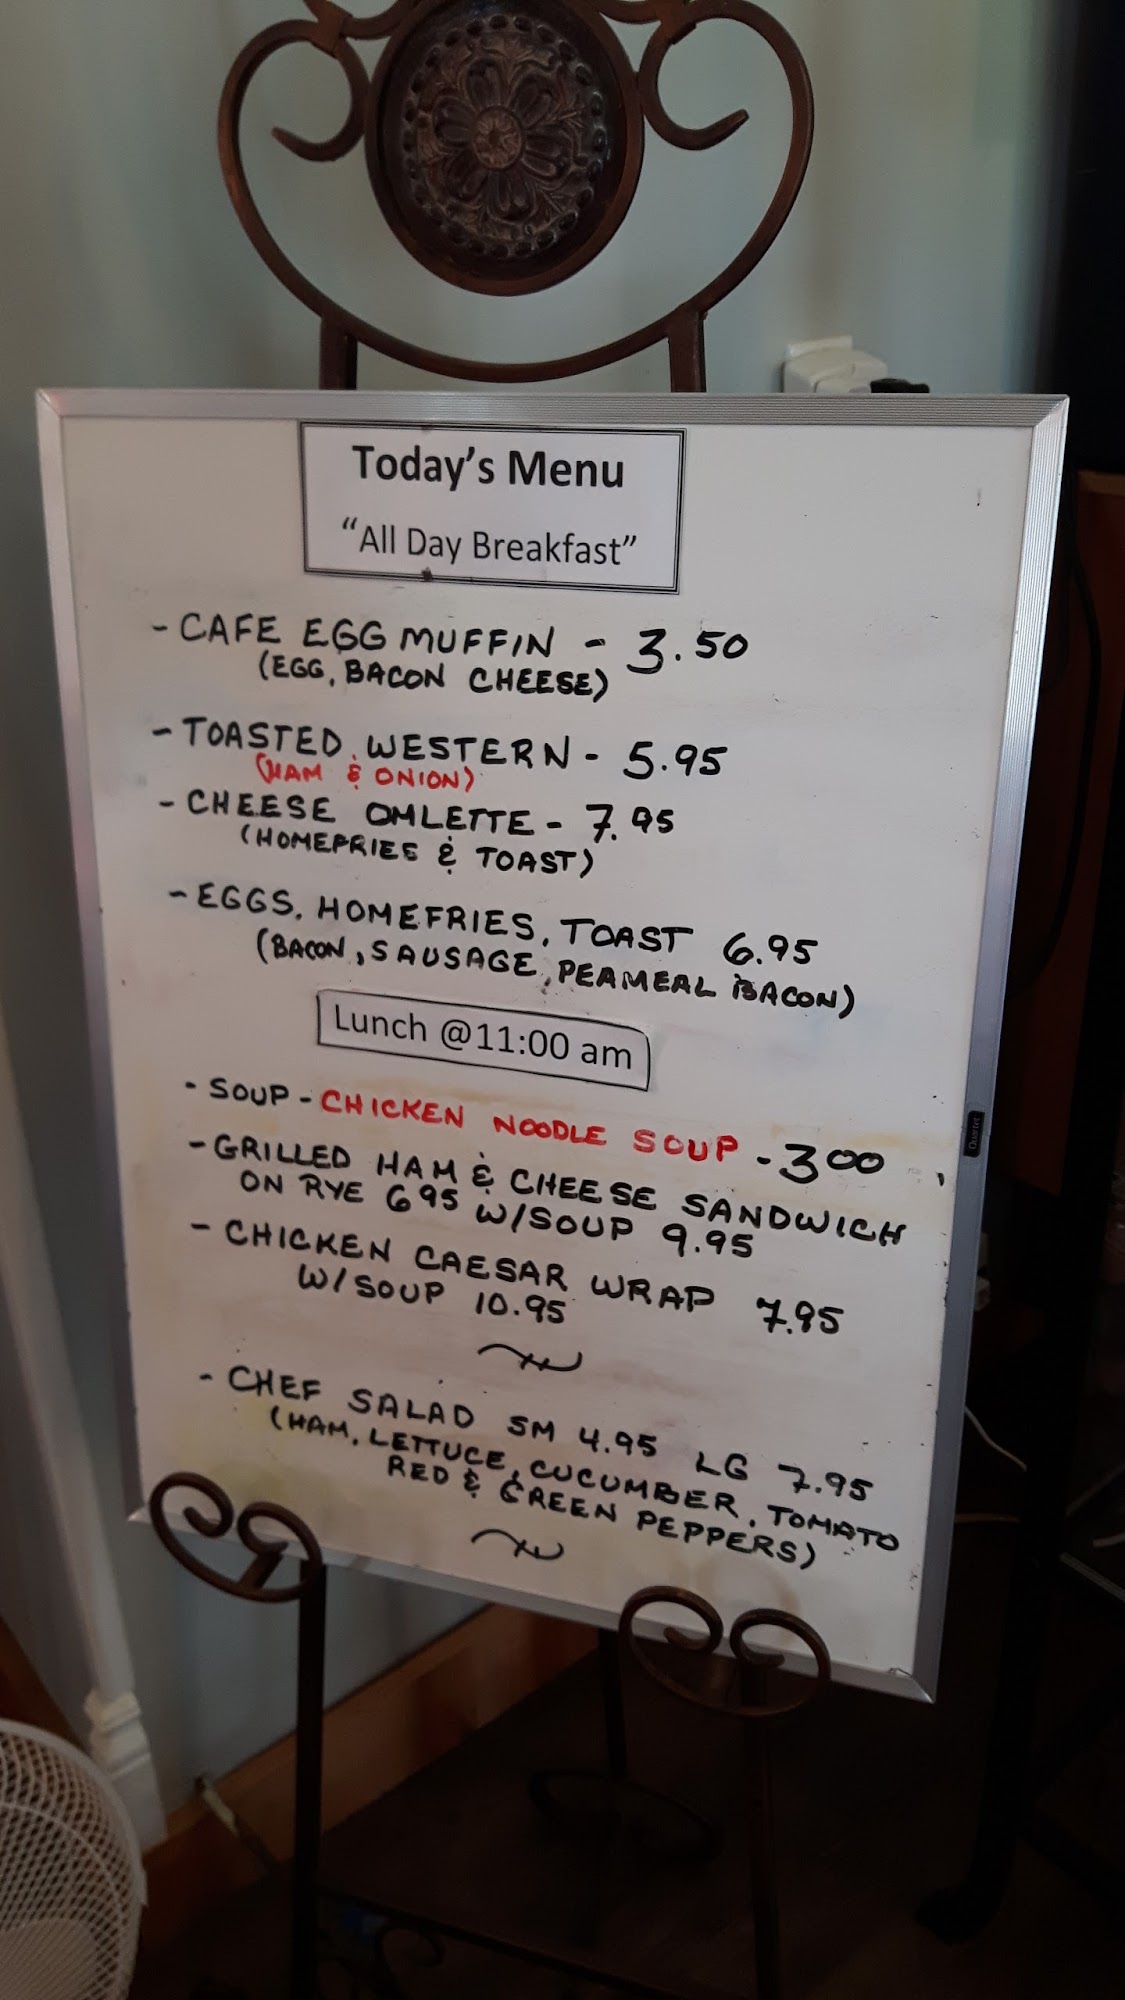 Today's Menu
"All Day Breakfast"
- CAFE EGG MUFFIN - 3.50
(EGG, BACON CHEESE)
- TOASTED WESTERN - 5.95
(HAM & ONION)
- CHEESE OMLETTE - 7.95
(HOMEFRIES & TOAST)
- EGGS, HOMEFRIES, TOAST 6.95
(BACON, SAUSAGE, PEAMEAL BACON)
Lunch @11:00 am
- SOUP - CHICKEN NOODLE SOUP - 3.00
- GRILLED HAM & CHEESE SANDWICH
ON RYE 6 95 W/SOUP 9.95
- CHICKEN CAESAR WRAP 7.95
W/SOUP 10.95
- CHEF SALAD SM 4.95 LG 7.95
(HAM, LETTUCE, CUCUMBER, TOMATO
RED & GREEN PEPPERS)
Quartet